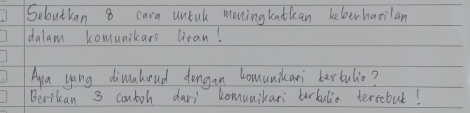 Sebutkan 8 cara untuk meningkatkan keberhasilan
dalam komunikasi lisan!
Apa yang dimaksud dengan komunikasi tertulis?
Berikan 3 contoh dari komunikasi tertulis tersebut!